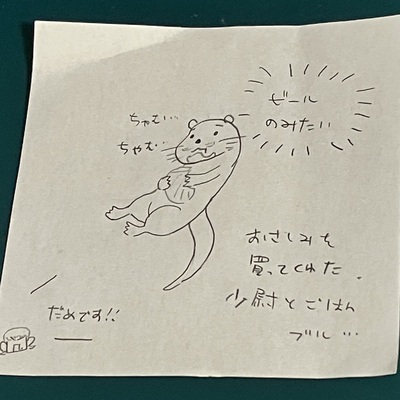 ビール
のみたい
ちゃむ…
ちゃむ…
おさしみを
買ってくれた
少尉とごはん
ブル…
だめです!!